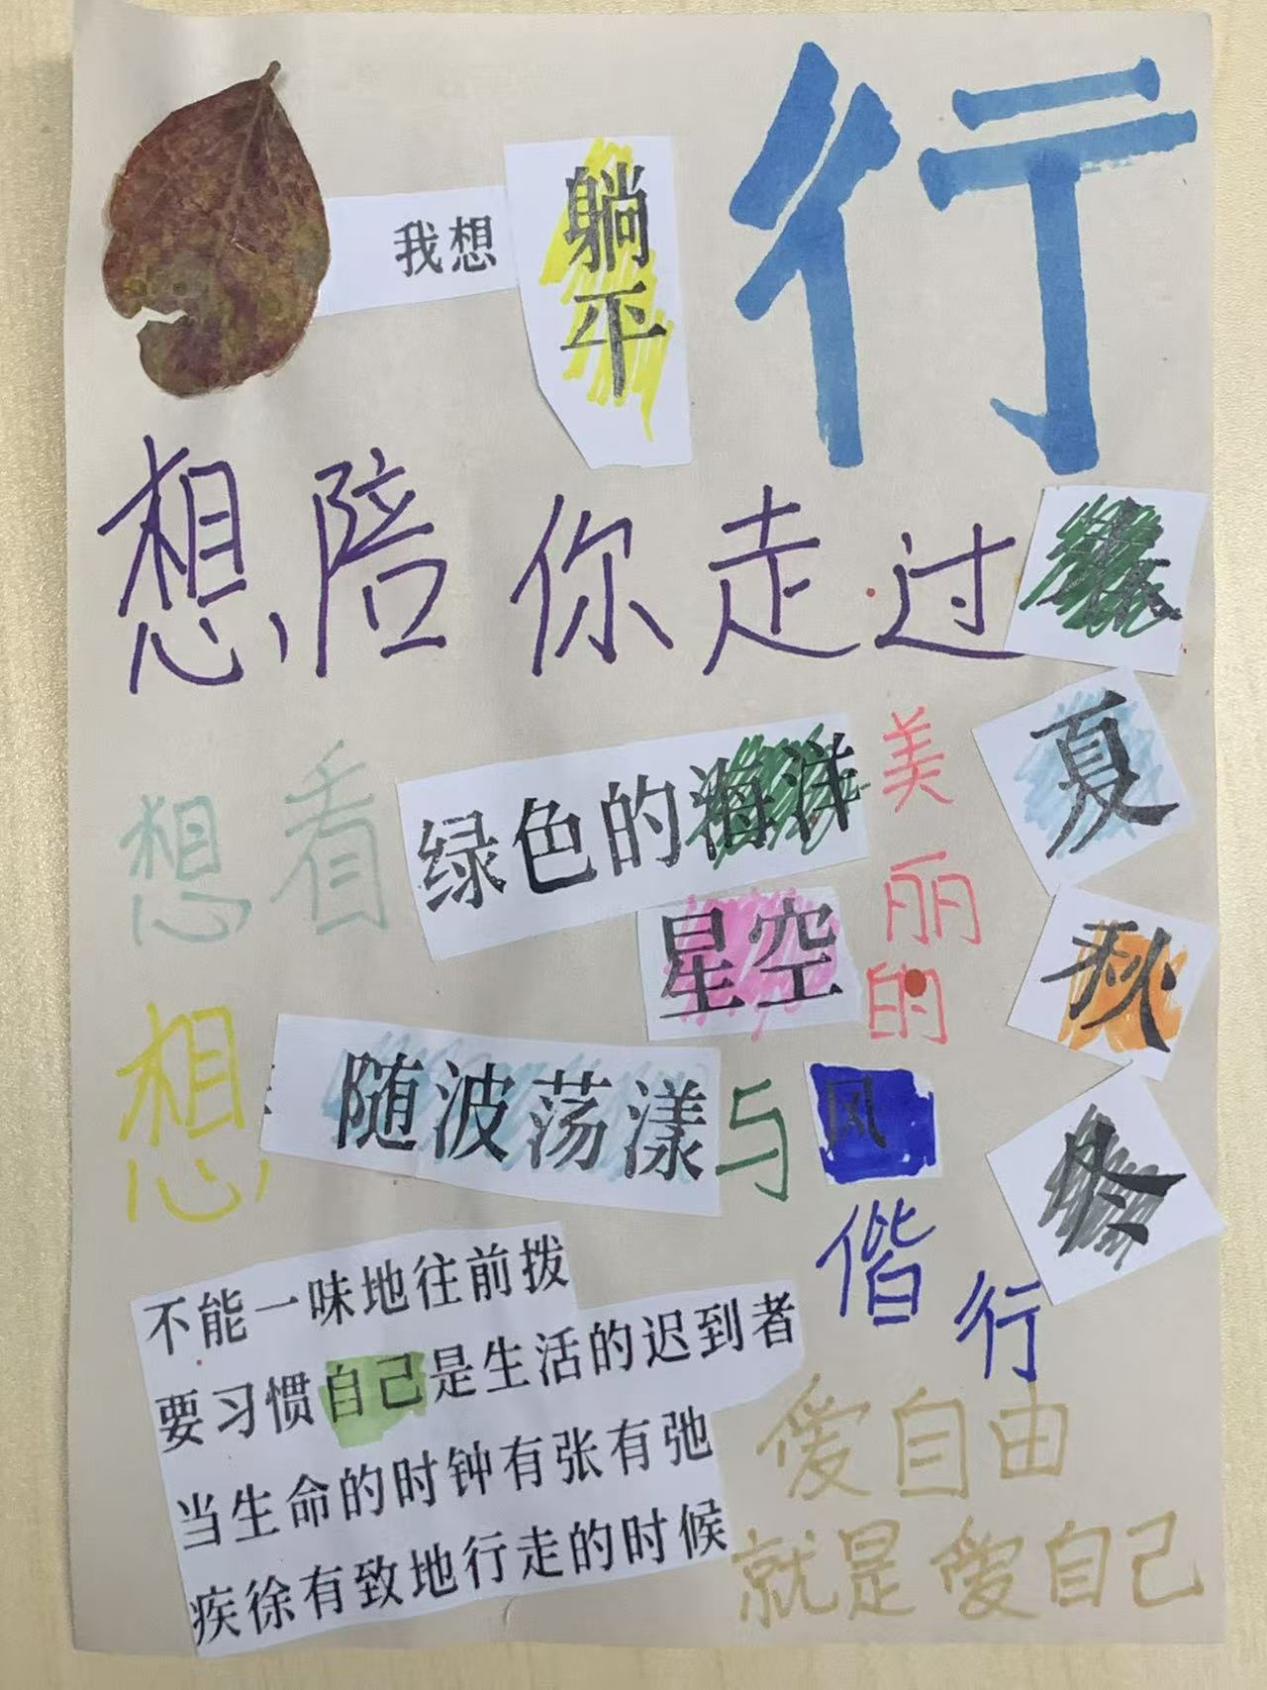 行
我想
躺平
想陪你走过
春
夏
秋
冬
想看绿色的海洋
美丽的
星空
想随波荡漾与风
偕行
不能一味地往前拨
要习惯自己是生活的迟到者
当生命的时钟有张有弛
疾徐有致地行走的时候
爱自由
就是爱自己